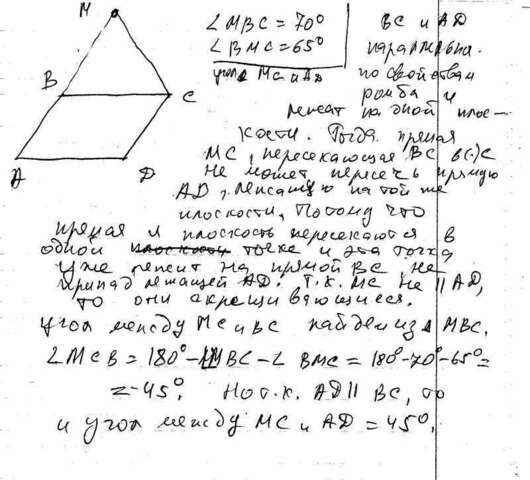 M
∠MBC = 70° BC и AD
∠BMC = 65° параллельна.
угол MC и AD по свойствам
B C ромба и
лежат на одной плос-
кости. Тогда прямая
A D MC, пересекающая BC в (·) C
не может пересечь прямую
AD, лежащую на той же
плоскости, потому что
прямая и плоскость пересекаются в
одной плоскости точке и эта точка
уже лежит на прямой BC не
принадлежащей AD. Т.к. MC не || AD,
то они скрещивающиеся.
угол между MC и BC найдем из Δ MBC.
∠MCB = 180° - ∠MBC - ∠BMC = 180° - 70° - 65° =
= 45°. Но т.к. AD || BC, то
и угол между MC и AD = 45°.